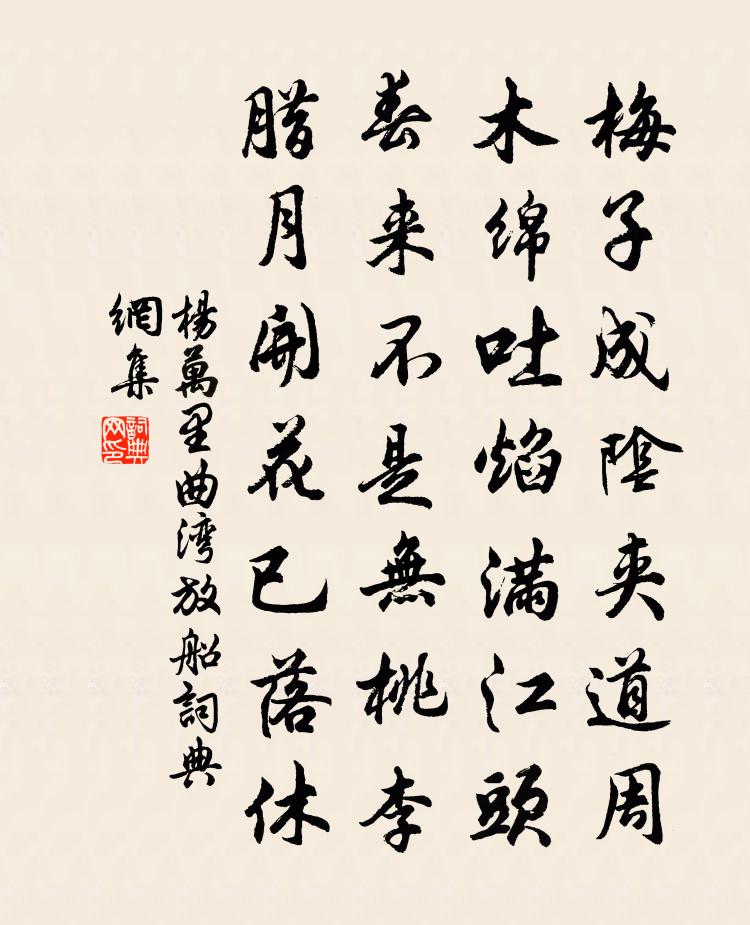 梅子成陰夾道周
木綿吐焰滿江頭
春來不是無桃李
腊月開花已落休
楊萬里曲湾放船詞典
網集
詞典
网印